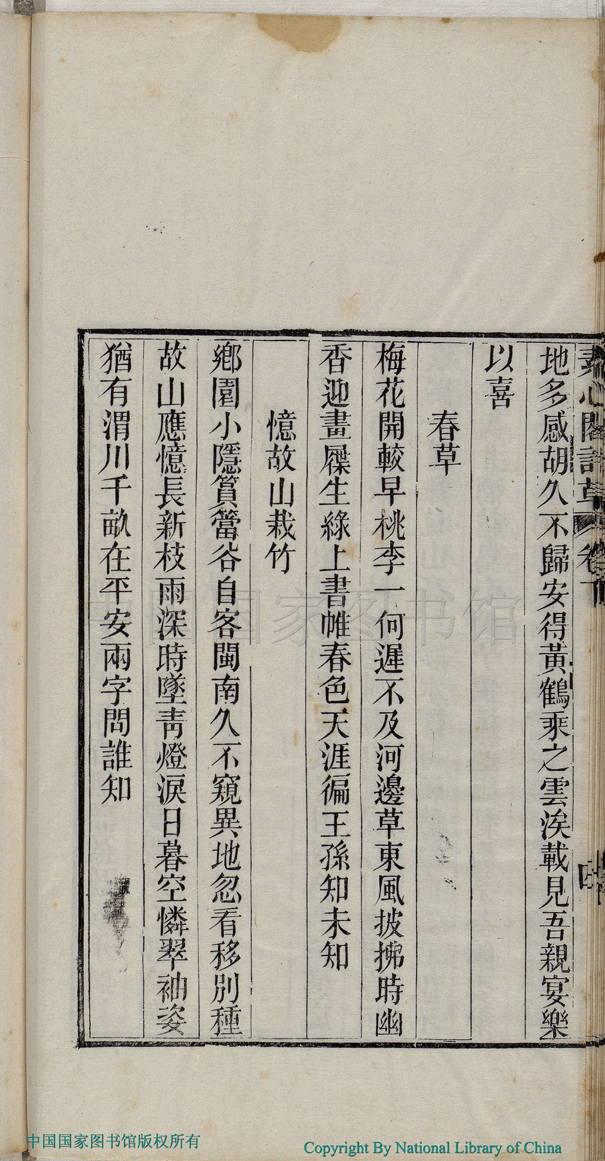 素心閣詩草 卷下 四
地多感胡久不歸安得黃鶴乘之雲涘載見吾親宴樂
以喜
春草
梅花開較早桃李一何遲不及河邊草東風披拂時幽
香迎畫屧生綠上書帷春色天涯徧王孫知未知
憶故山栽竹
鄉園小隱篔簹谷自客閩南久不窺異地忽看移別種
故山應憶長新枝雨深時墜青燈淚日暮空憐翠袖姿
猶有渭川千畝在平安兩字問誰知
中国国家图书馆
中国国家图书馆版权所有
Copyright By National Library of China